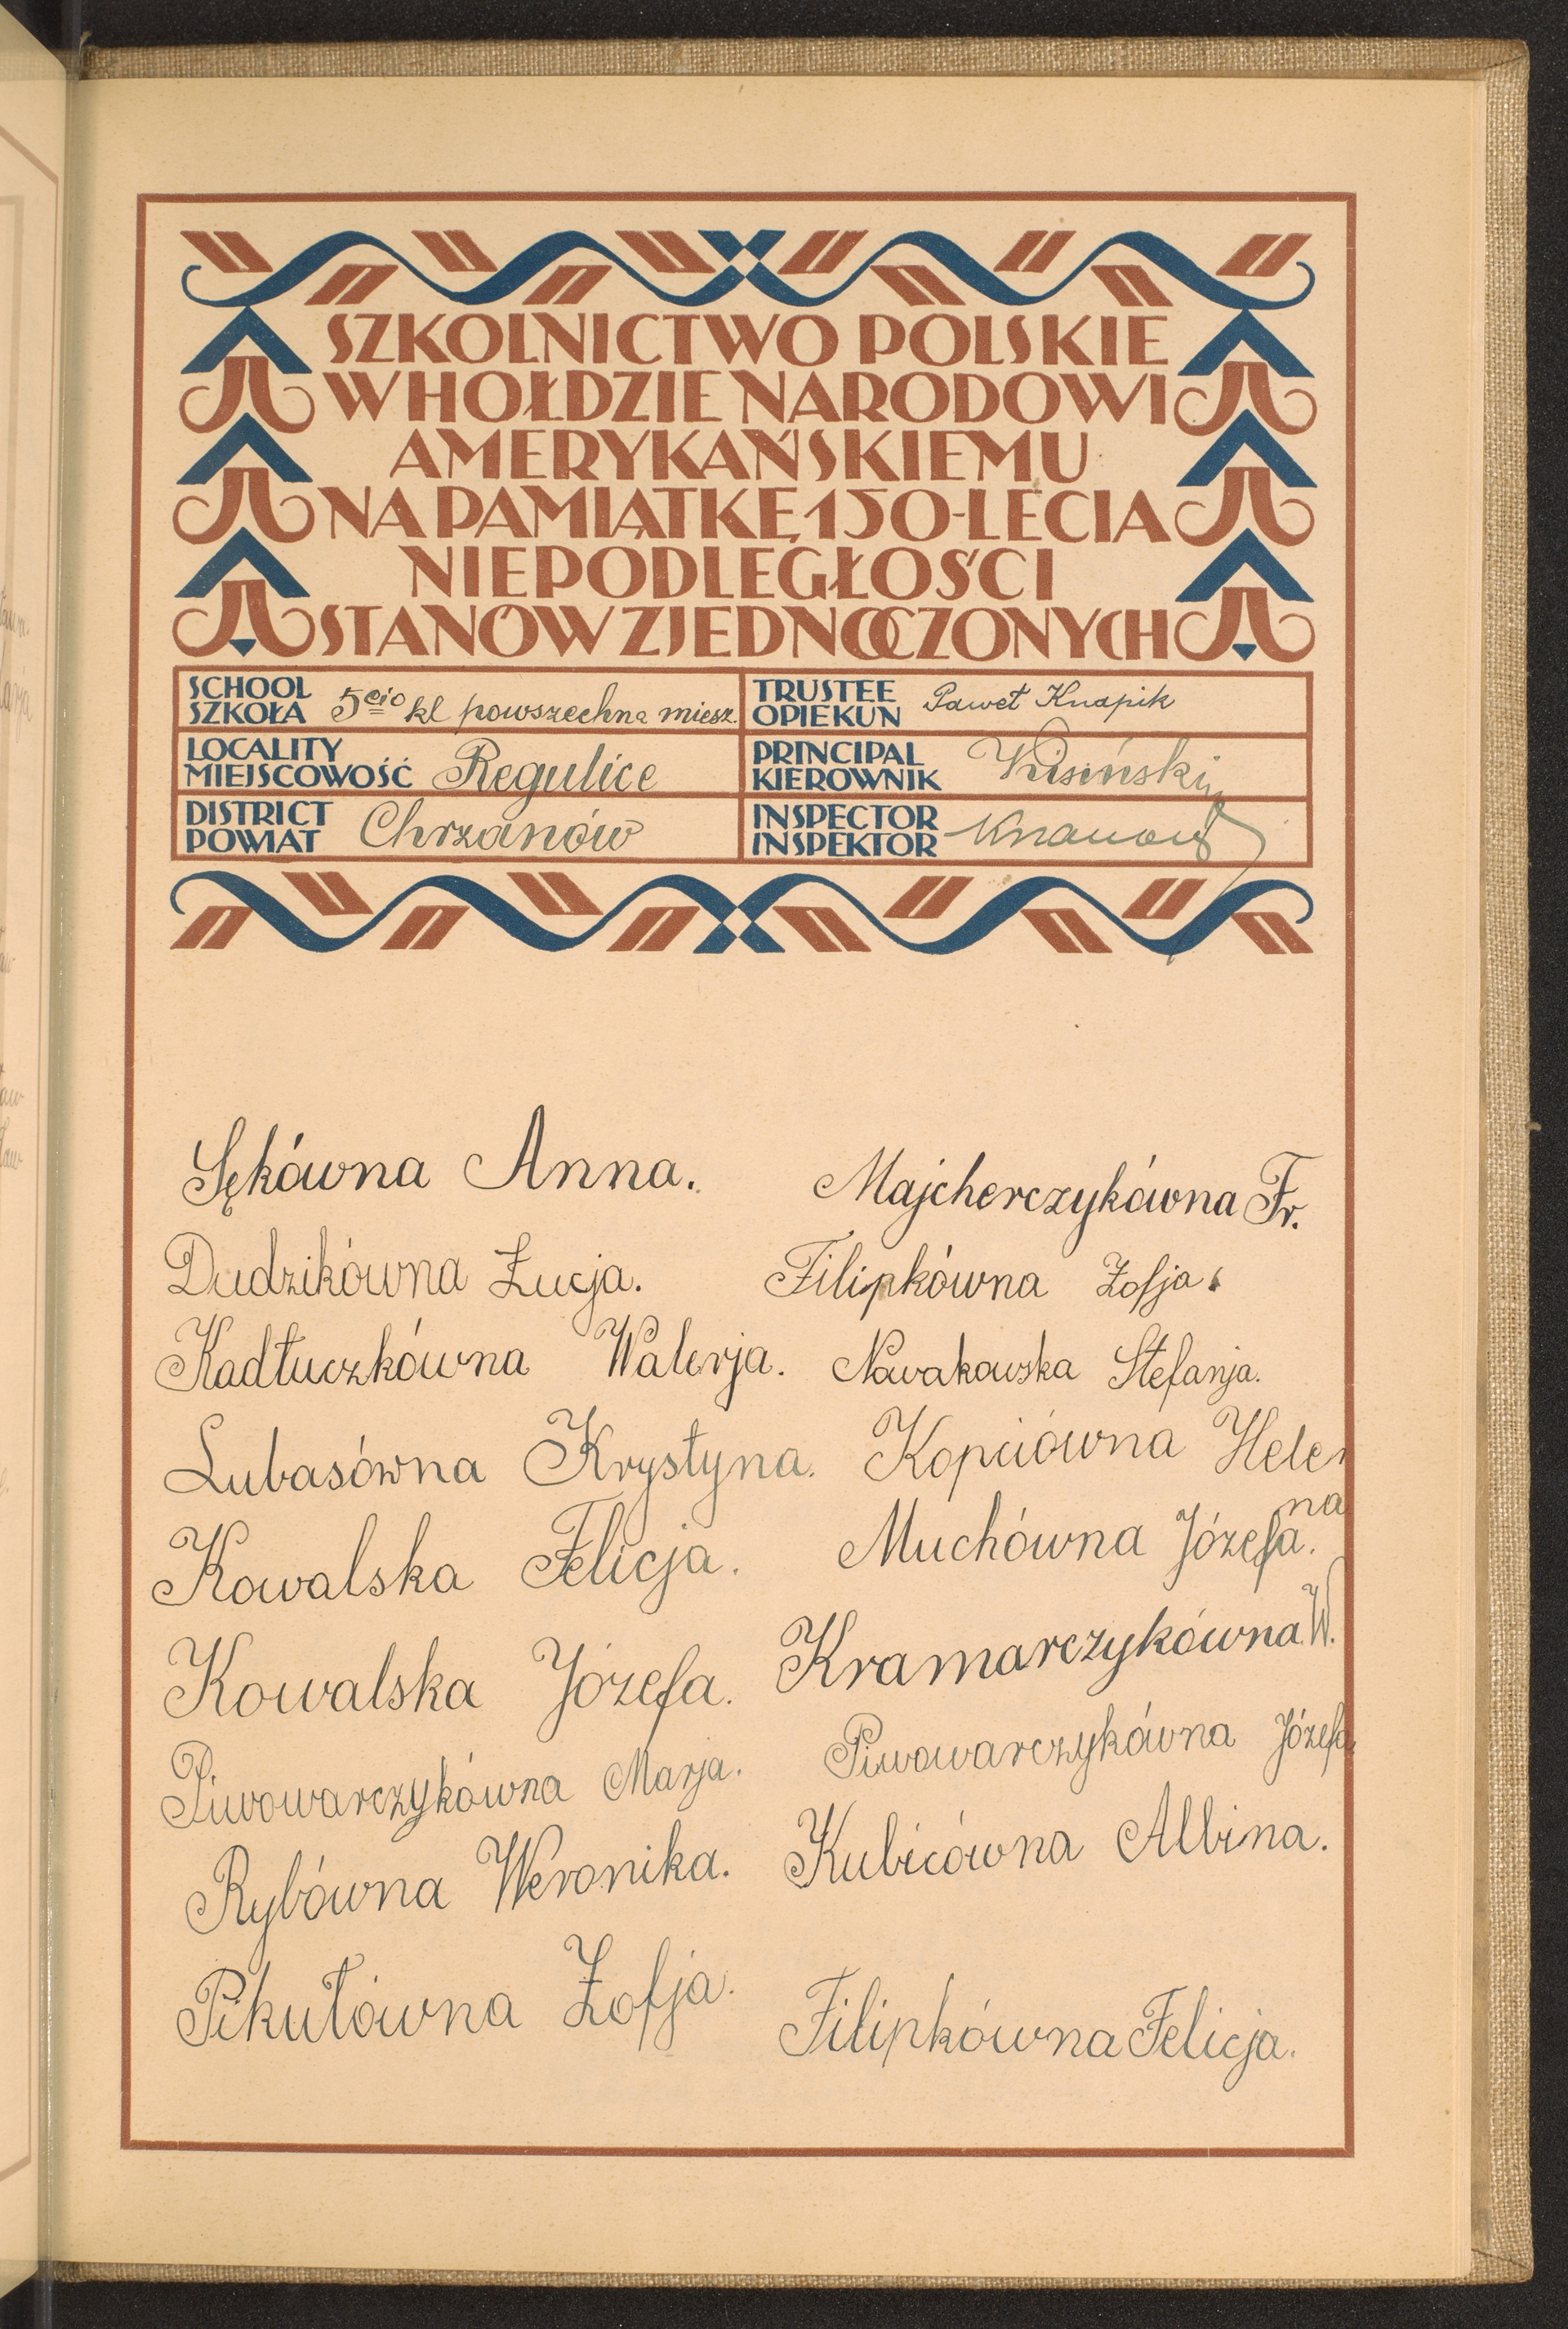 SZKOLNICTWO POLSKIE
W HOŁDZIE NARODOWI
AMERYKAŃSKIEMU
NA PAMIĄTKĘ 150-LECIA
NIEPODLEGŁOŚCI
STANÓW ZJEDNOCZONYCH
SCHOOL
SZKOŁA 5cio kl powszechna miesz.
TRUSTEE
OPIEKUN Paweł Knapik
LOCALITY
MIEJSCOWOŚĆ Regulice
PRINCIPAL
KIEROWNIK
DISTRICT
POWIAT Chrzanów
INSPECTOR
INSPEKTOR
Sękówna Anna.
Dudzikówna Łucja.
Kadłuczkówna Walerja.
Lubasówna Krystyna.
Kowalska Felicja.
Kowalska Józefa.
Piwowarczykówna Marja.
Rybówna Weronika.
Pikułówna Zofja.
Majcherczykówna Fr.
Filipkówna Zofja.
Nowakowska Stefanja.
Kopciówna Hele
na
Muchówna Józefa.
Kramarczykówna W.
Piwowarczykówna Józefa
Kubicówna Albina.
Filipkówna Felicja.